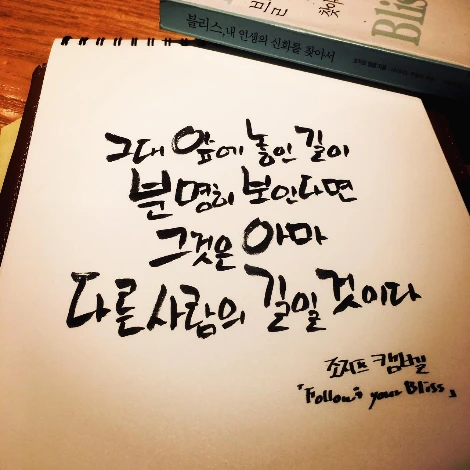 블리스, 내 인생의 신화를 찾아서
Bliss
그대 앞에 놓인 길이
분명히 보인다면
그것은 아마
다른 사람의 길일 것이다
조지프 캠벨
「Follow your Bliss」